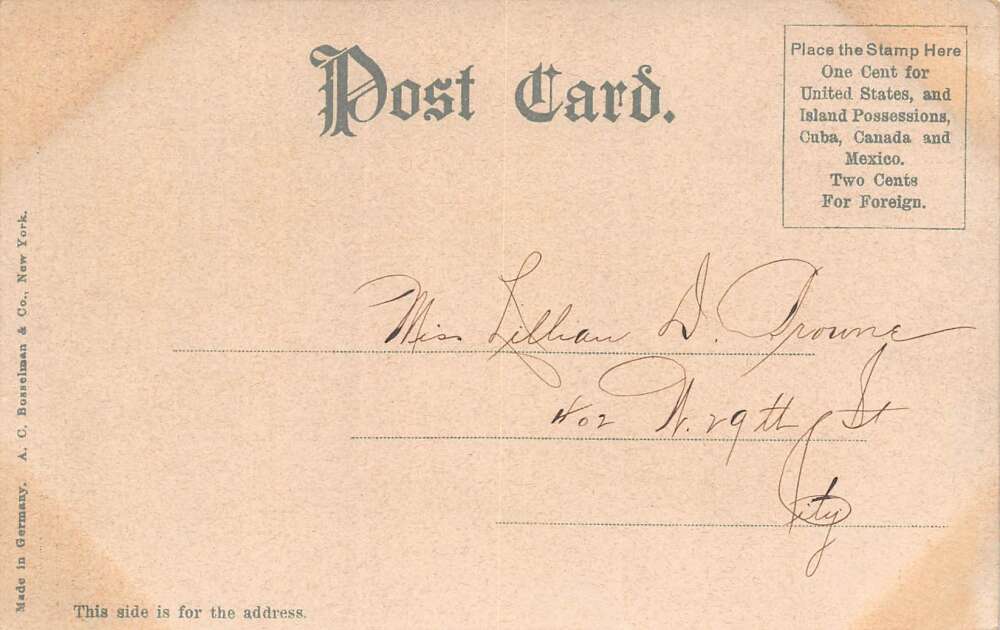 Post Card.
Place the Stamp Here
One Cent for
United States, and
Island Possessions,
Cuba, Canada and
Mexico.
Two Cents
For Foreign.
Miss Lillian D. Browne
402 W. 29th St
City
This side is for the address.
Made in Germany. A. C. Bosselman & Co., New York.